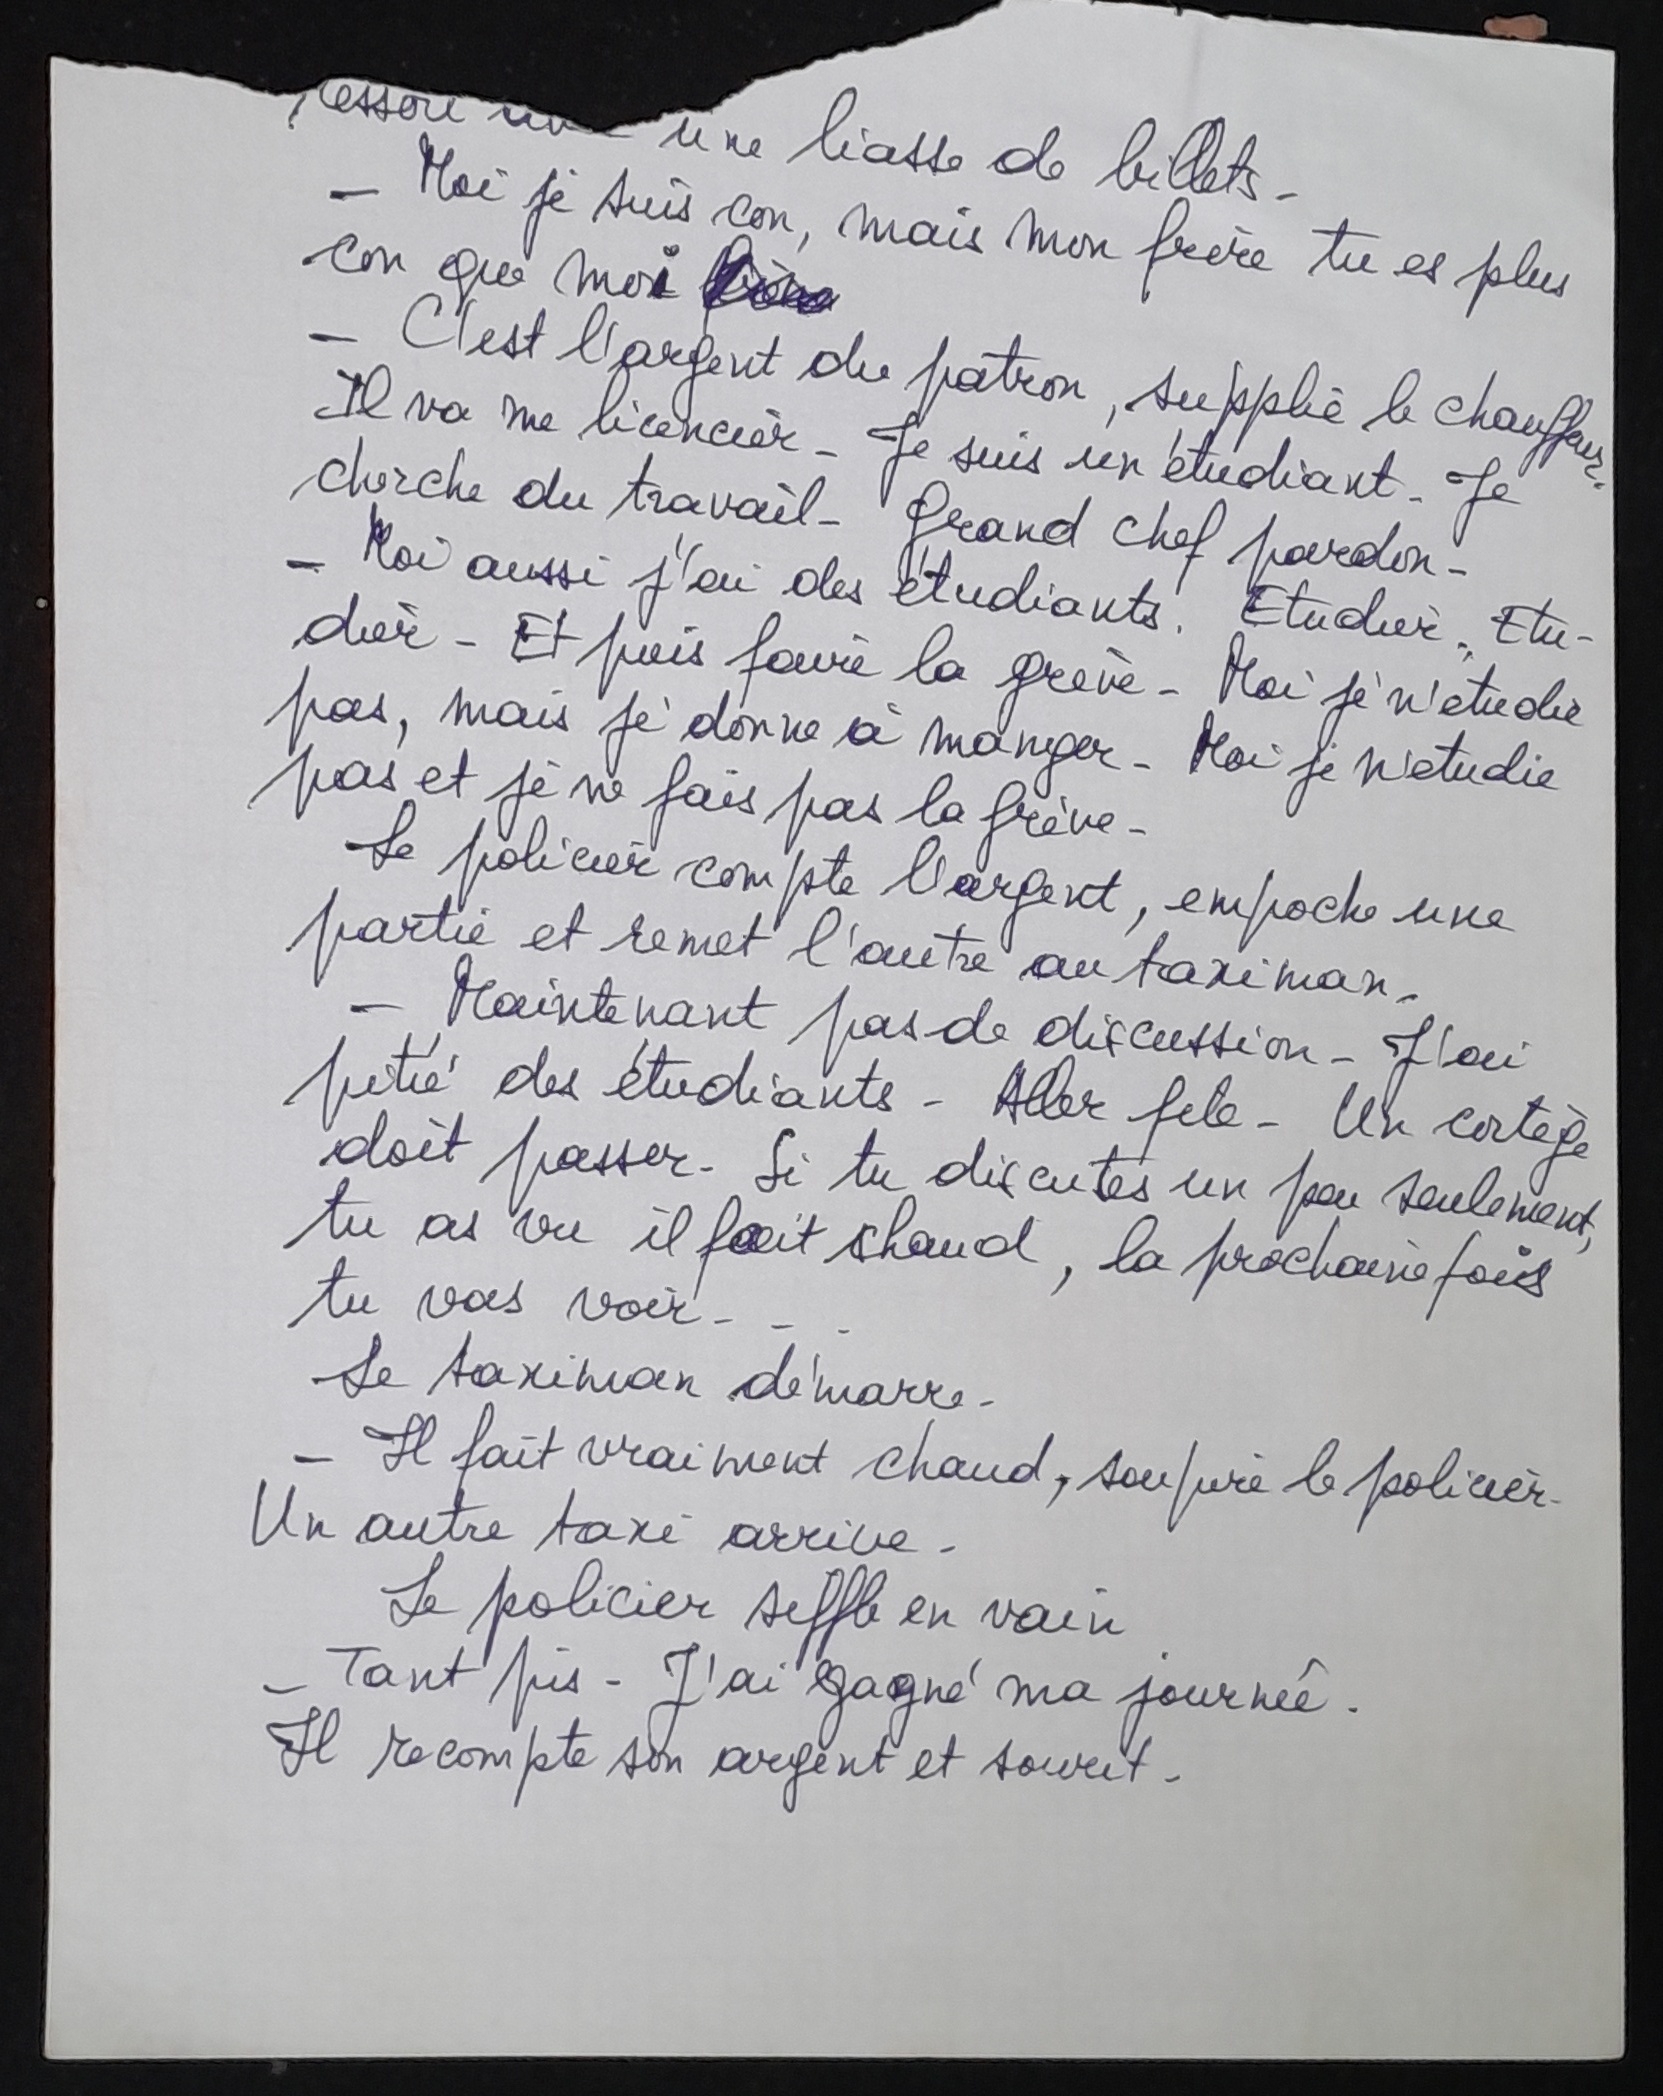 une liasse de billets -
- Moi je suis con, mais mon frère tu es plus
con que moi
- C'est l'argent du patron, supplie le chauffeur.
Il va me licencier - Je suis un étudiant - Je
cherche du travail - Grand chef pardon -
- Moi aussi j'ai des étudiants. Etudier, Etu-
dier - Et puis faire la grève - Moi je n'étudie
pas, mais je donne à manger - Moi je n'étudie
pas et je ne fais pas la grève -
Le policier compte l'argent, empoche une
partie et remet l'autre au taximan.
- Maintenant pas de discussion - J'ai
pitié des étudiants - Aller file - Un cortège
doit passer - Si tu discutes un peu seulement,
tu as vu il fait chaud, la prochaine fois
tu vas voir - - -
Le taximan démarre -
- Il fait vraiment chaud, soupire le policier -
Un autre taxi arrive -
Le policier siffle en vain
- Tant pis - J'ai gagné ma journée.
Il recompte son argent et sourit -